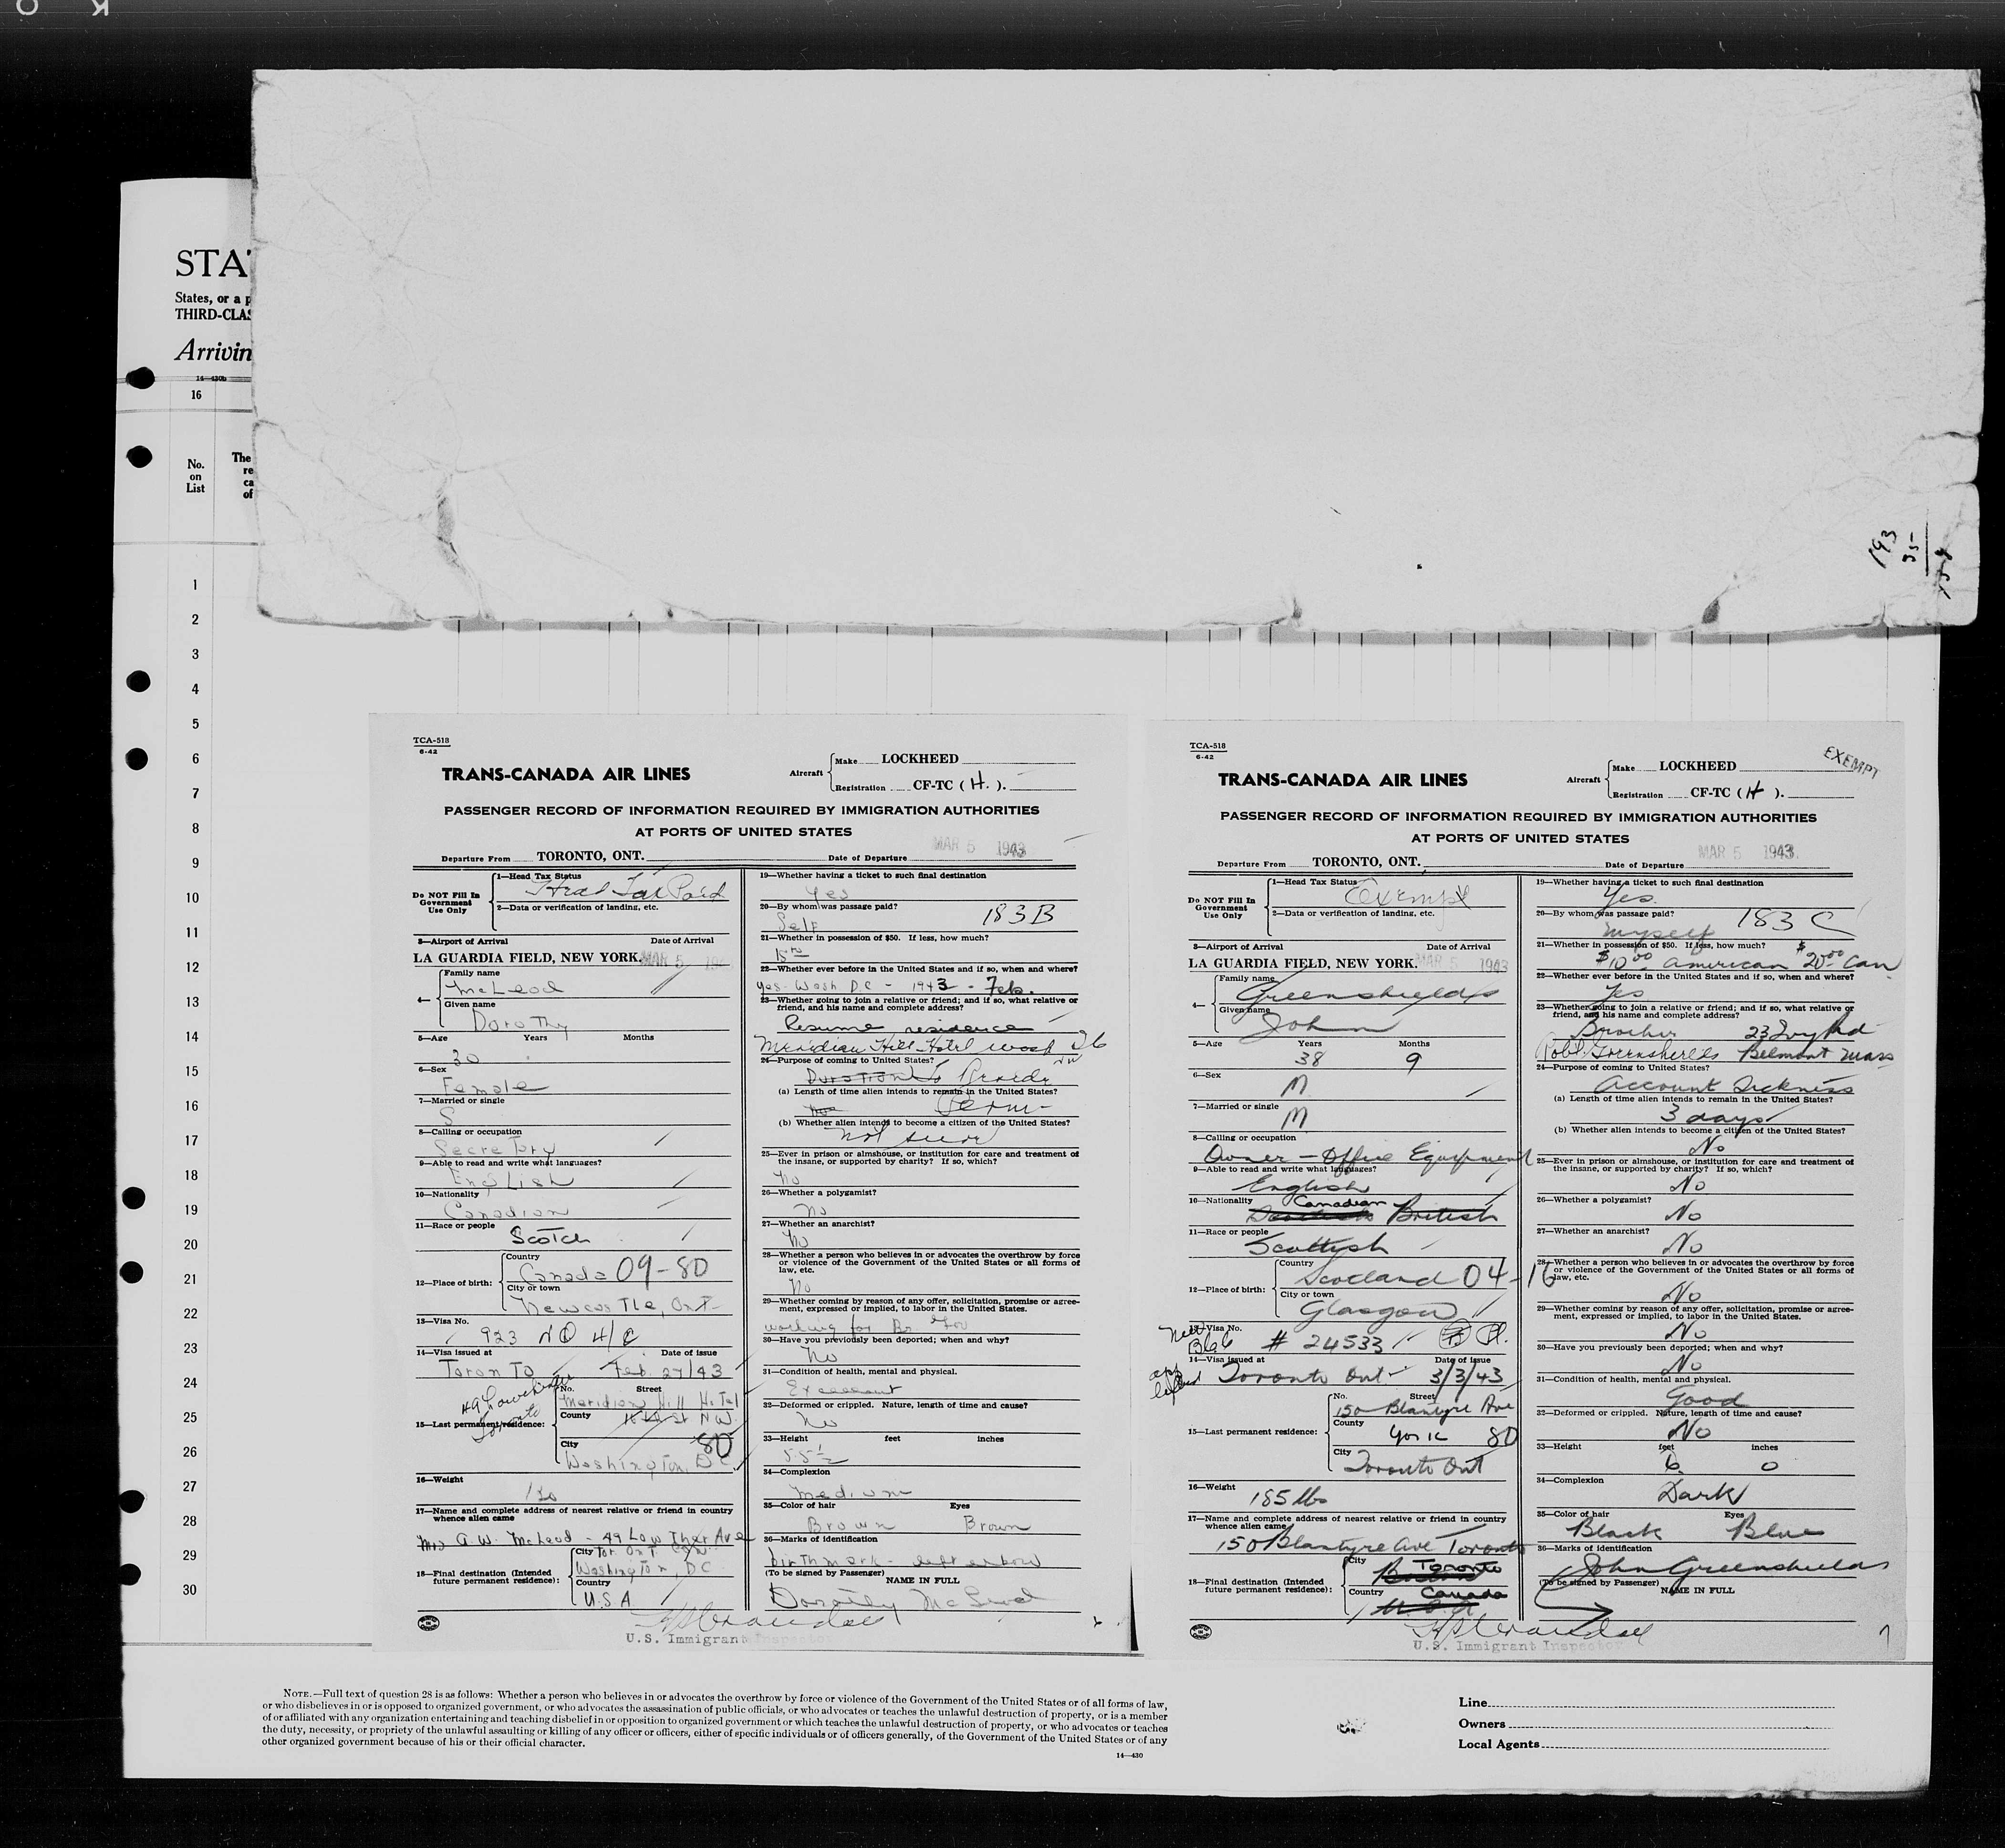 STA
States, or a p
THIRD-CLAS
Arrivin
14—430b
16
No.
on
List
The
re
ca
of
193
35
158
1
2
3
4
5
6
7
8
9
10
11
12
13
14
15
16
17
18
19
20
21
22
23
24
25
26
27
28
29
30
TCA-518
6-42
TRANS-CANADA AIR LINES
Aircraft
Make LOCKHEED
Registration CF-TC ( H. ).
PASSENGER RECORD OF INFORMATION REQUIRED BY IMMIGRATION AUTHORITIES
AT PORTS OF UNITED STATES
Departure From TORONTO, ONT.
Date of Departure MAR 5 1943
Do NOT Fill In
Government
Use Only
1—Head Tax Status
Head Tax Paid
2—Data or verification of landing, etc.
3—Airport of Arrival Date of Arrival
LA GUARDIA FIELD, NEW YORK. MAR 5 194
4—
Family name
McLeod
Given name
Dorothy
5—Age Years Months
30
6—Sex
Female
7—Married or single
S
8—Calling or occupation
Secretary
9—Able to read and write what languages?
English
10—Nationality
Canadian
11—Race or people
Scotch
12—Place of birth:
Country
Canada 09-80
City or town
Newcastle, Ont
13—Visa No.
923 NQ 4/C
14—Visa issued at Date of issue
Toronto Feb. 27/43
49 Lowther Ave
Toronto
15—Last permanent residence:
No. Street
Meridian Hill Hotel
County
16th St N.W.
80
City
Washington, D.C.
16—Weight
120
17—Name and complete address of nearest relative or friend in country
whence alien came
Mrs A.W. McLeod - 49 Lowther Ave
Tor. Ont. Can.
18—Final destination (Intended
future permanent residence):
City
Washington, D.C.
Country
U.S.A
19—Whether having a ticket to such final destination
Yes
20—By whom was passage paid?
Self 183B
21—Whether in possession of $50. If less, how much?
22—Whether ever before in the United States and if so, when and where?
Yes - Wash D.C - 1943 - Feb.
23—Whether going to join a relative or friend; and if so, what relative or
friend, and his name and complete address?
Resume residence
Meridian Hill Hotel Wash
24—Purpose of coming to United States?
Duration to Reside
(a) Length of time alien intends to remain in the United States?
Perm
(b) Whether alien intends to become a citizen of the United States?
not sure
25—Ever in prison or almshouse, or institution for care and treatment of
the insane, or supported by charity? If so, which?
No
26—Whether a polygamist?
No
27—Whether an anarchist?
No
28—Whether a person who believes in or advocates the overthrow by force
or violence of the Government of the United States or all forms of
law, etc.
No
29—Whether coming by reason of any offer, solicitation, promise or agree-
ment, expressed or implied, to labor in the United States.
working for Br. Gov
30—Have you previously been deported; when and why?
No
31—Condition of health, mental and physical.
Excellent
32—Deformed or crippled. Nature, length of time and cause?
No
33—Height feet inches
5-5½
34—Complexion
Medium
35—Color of hair Eyes
Brown Brown
36—Marks of identification
birthmark - left elbow
(To be signed by Passenger)
NAME IN FULL
Dorothy McLeod
U.S. Immigrant Inspector
TCA-518
6-42
TRANS-CANADA AIR LINES
Aircraft
Make LOCKHEED
Registration CF-TC ( H ).
EXEMPT
PASSENGER RECORD OF INFORMATION REQUIRED BY IMMIGRATION AUTHORITIES
AT PORTS OF UNITED STATES
Departure From TORONTO, ONT.
Date of Departure MAR 5 1943
Do NOT Fill In
Government
Use Only
1—Head Tax Status
Exempt
2—Data or verification of landing, etc.
3—Airport of Arrival Date of Arrival
LA GUARDIA FIELD, NEW YORK. MAR 5 1943
4—
Family name
Greenshields
Given name
John
5—Age Years Months
38 9
6—Sex
M
7—Married or single
M
8—Calling or occupation
Owner - Office Equipment
9—Able to read and write what languages?
English
10—Nationality
Canadian
British
11—Race or people
Scottish
12—Place of birth:
Country
Scotland 04-16
City or town
Glasgow
13—Visa No.
# 24533
14—Visa issued at Date of issue
Toronto Ont 3/3/43
15—Last permanent residence:
No. Street
150 Blantyre Ave
County
York 80
City
Toronto Ont
16—Weight
185 lbs
17—Name and complete address of nearest relative or friend in country
whence alien came
150 Blantyre Ave Toronto
18—Final destination (Intended
future permanent residence):
City
Toronto
Country
Canada
U.S.A
19—Whether having a ticket to such final destination
Yes.
20—By whom was passage paid?
myself 183 C
21—Whether in possession of $50. If less, how much?
$10.00 American $20.00 Can
22—Whether ever before in the United States and if so, when and where?
Yes
23—Whether going to join a relative or friend; and if so, what relative or
friend, and his name and complete address?
Brother 23 Ivy Rd
Robt. Greenshields Belmont Mass
24—Purpose of coming to United States?
Account Sickness
(a) Length of time alien intends to remain in the United States?
3 days
(b) Whether alien intends to become a citizen of the United States?
No
25—Ever in prison or almshouse, or institution for care and treatment of
the insane, or supported by charity? If so, which?
No
26—Whether a polygamist?
No
27—Whether an anarchist?
No
28—Whether a person who believes in or advocates the overthrow by force
or violence of the Government of the United States or all forms of
law, etc.
No
29—Whether coming by reason of any offer, solicitation, promise or agree-
ment, expressed or implied, to labor in the United States.
No
30—Have you previously been deported; when and why?
No
31—Condition of health, mental and physical.
Good
32—Deformed or crippled. Nature, length of time and cause?
No
33—Height feet inches
6 0
34—Complexion
Dark
35—Color of hair Eyes
Black Blue
36—Marks of identification
John Greenshields
(To be signed by Passenger)
NAME IN FULL
U.S. Immigrant Inspector
NOTE.—Full text of question 28 is as follows: Whether a person who believes in or advocates the overthrow by force or violence of the Government of the United States or of all forms of law,
or who disbelieves in or is opposed to organized government, or who advocates the assassination of public officials, or who advocates or teaches the unlawful destruction of property, or is a member
of or affiliated with any organization entertaining and teaching disbelief in or opposition to organized government or which teaches the unlawful destruction of property, or who advocates or teaches
the duty, necessity, or propriety of the unlawful assaulting or killing of any officer or officers, either of specific individuals or of officers generally, of the Government of the United States or of any
other organized government because of his or their official character.
14—430
Line
Owners
Local Agents